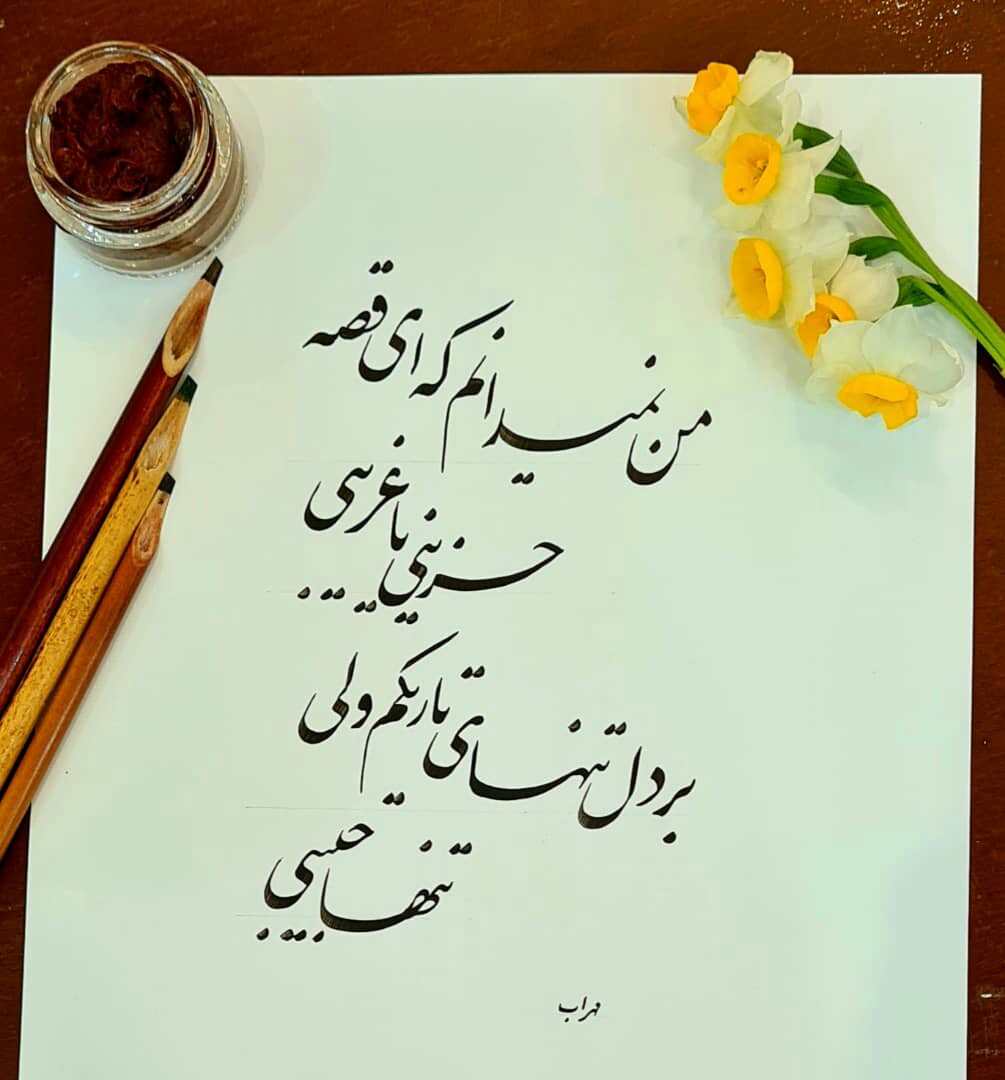 من نمیدانم که ای قصه
حزینی یا غریبی
بر دل تنهای تاریکم ولی
تنها حبیبی
مهراب